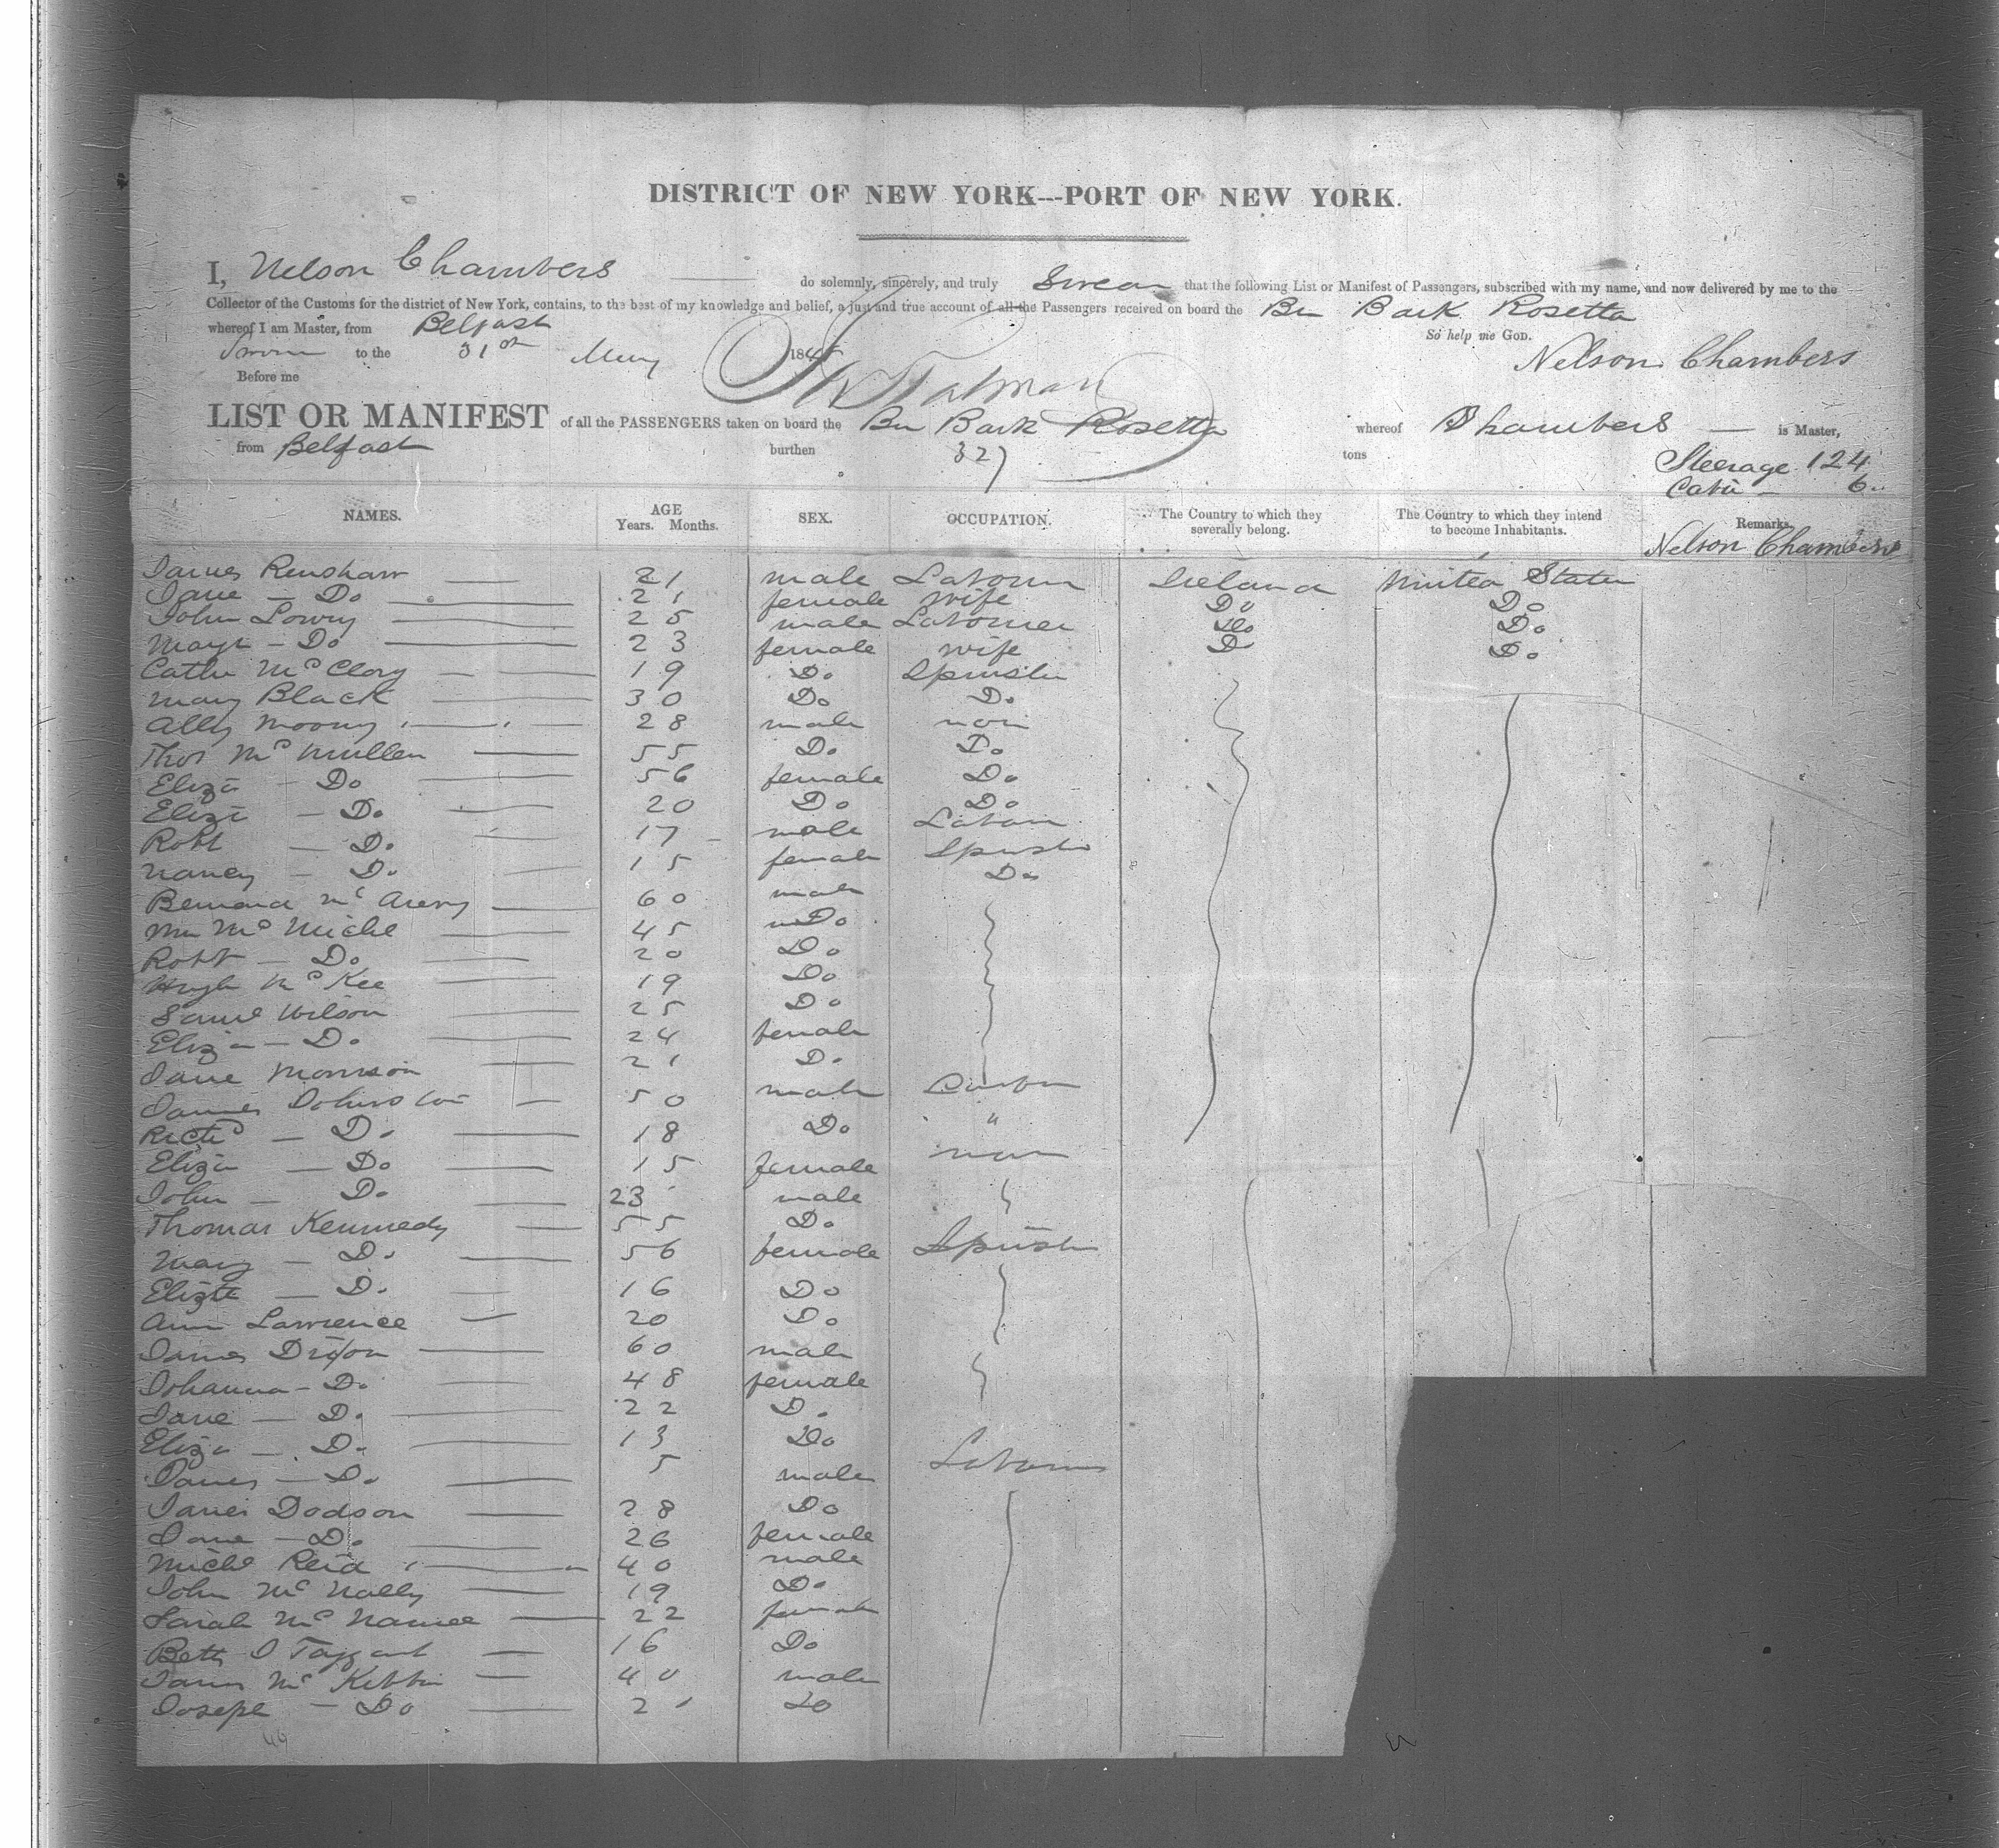 DISTRICT OF NEW YORK---PORT OF NEW YORK.
I, Nelson Chambers do solemnly, sincerely, and truly Swear that the following List or Manifest of Passengers, subscribed with my name, and now delivered by me to the
Collector of the Customs for the district of New York, contains, to the best of my knowledge and belief, a just and true account of all the Passengers received on board the Br Bark Rosetta
whereof I am Master, from Belfast So help me GOD.
Sworn to the 31st May 184 Nelson Chambers
Before me
LIST OR MANIFEST of all the PASSENGERS taken on board the Br Bark Rosetta whereof Chambers is Master,
from Belfast burthen 327 tons Steerage 124
Cabin 6
NAMES. AGE Years. Months. SEX. OCCUPATION. The Country to which they severally belong. The Country to which they intend to become Inhabitants. Remarks.
Nelson Chambers
James Renshaw 21 male Laborer Ireland United States
Jane - Do 21 female Wife Do Do
John Lowry 25 male Laborer Do Do
Mary - Do 23 female Wife Do Do
Cathe McClory 19 Do Spinster
Mary Black 30 Do Do
Ally Moony 28 male non
Thos McMullen 55 Do Do
Eliza - Do 56 female Do
Eliza - Do 20 Do Do
Robt - Do 17 male Labor
Nancy - Do 15 female Spinster
Do
Bernard Mc 60 male
Wm Mc Michl 45 Do
Robt - Do 20 Do
Hugh McKee 19 Do
Saml Wilson 25 Do
Eliza - Do 24 female
Jane Morrison 21 Do
James Johnston 50 male
Richd - Do 18 Do "
Eliza - Do 15 female non
John - Do 23 male
Thomas Kennedy 55 Do
Mary - Do 56 female Spinster
Eliza - Do 16 Do
Ann Lawrence 20 Do
James Dixon 60 male
Johanna - Do 48 female
Jane - Do 22 Do
Eliza - Do 13 Do
James - Do 5 male Laborer
James Dodson 28 Do
Jane - Do 26 female
Michl Reid 40 male
John McNally 19 Do
Sarah McNamee 22 female
Betty Taggart 16 Do
James McKibbin 40 male
Joseph - Do 21 Do